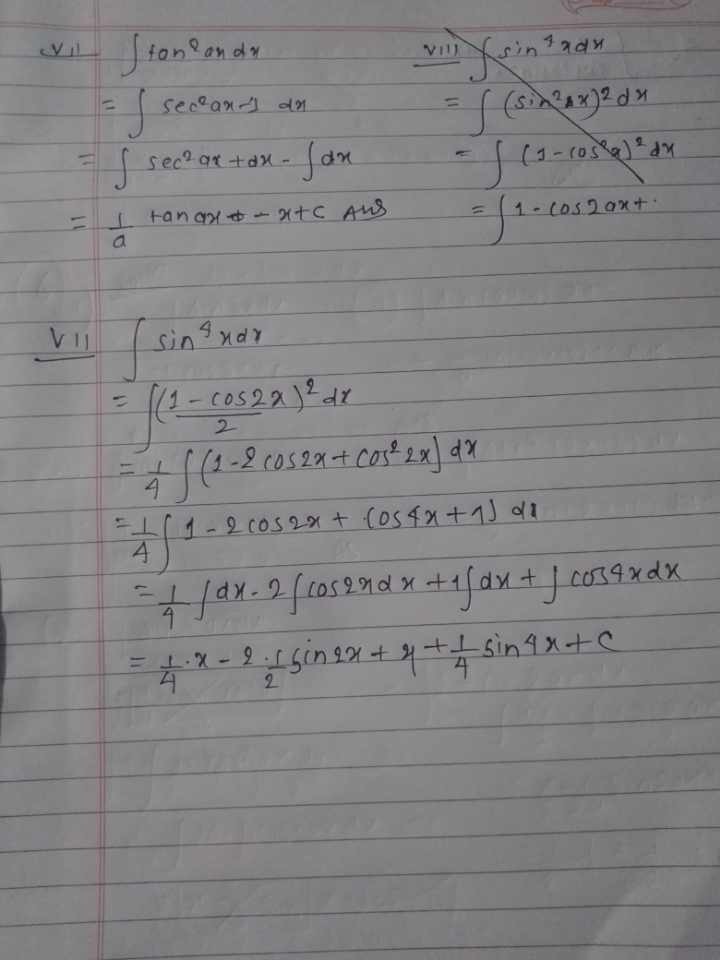 VII ∫ tan² ax dx
= ∫ sec² ax-1 dx
= ∫ sec² ax + dx - ∫ dx
= 1/a tan ax - x + c Ans
VIII ∫ sin⁴ x dx
= ∫ (sin² x)² dx
= ∫ (1 - cos² )² dx
= ∫ 1 - cos 2ax +
VII ∫ sin⁴ x dx
= ∫ (1 - cos 2x / 2)² dx
= 1/4 ∫ (1 - 2 cos 2x + cos² 2x] dx
= 1/4 ∫ 1 - 2 cos 2x + cos 4x + 1) dx
= 1/4 ∫ dx - 2 ∫ cos 2x dx + 1 ∫ dx + ∫ cos 4x dx
= 1/4 · x - 2 · 1/2 sin 2x + x + 1/4 sin 4x + c